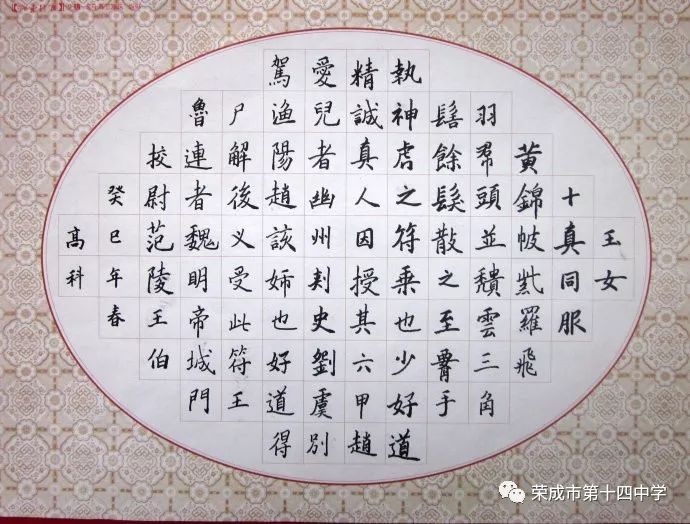 王女
十真同服
黃錦帔紫羅飛
羽帬頭並頹雲三角
髻餘髮散之至胷手
執神虎之符乘也少好道
精誠真人因授其六甲趙
愛兒者幽州刾史劉虞別
駕漁陽趙該姉也好道得
尸解後又受此符王
魯連者魏明帝城門
挍尉范陵王伯
癸巳年春
高科
荣成市第十四中学